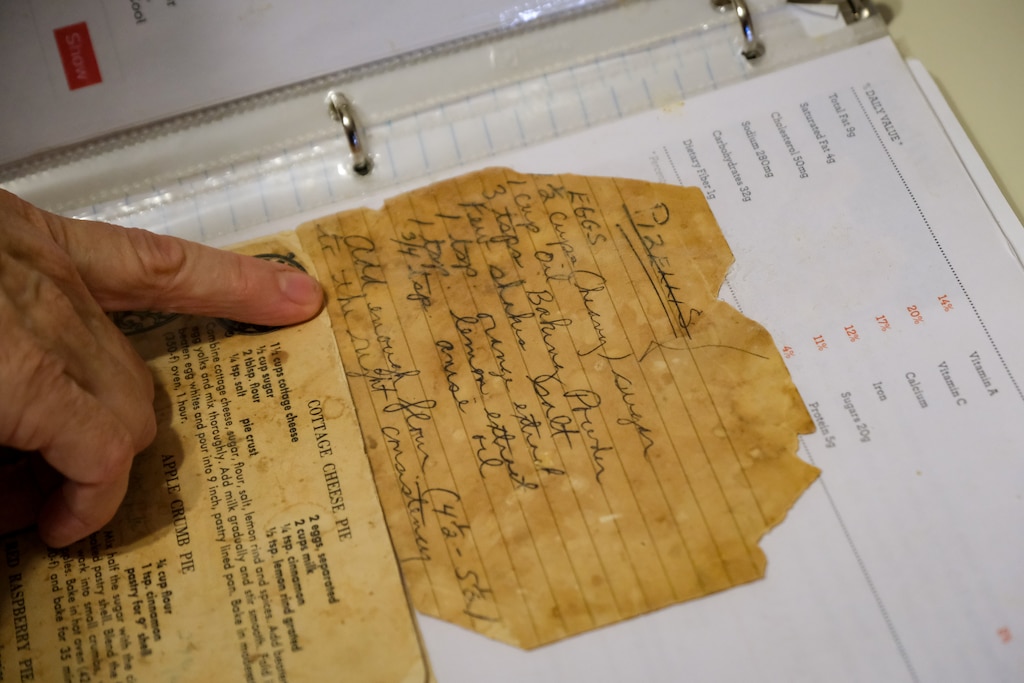 Snow
% DAILY VALUE*
Total Fat 9g 14%
Saturated Fat 4g 20%
Cholesterol 50mg 17%
Sodium 280mg 12%
Carbohydrates 32g 11%
Dietary Fiber 1g 4%
Protein 5g
Sugars 20g
Iron
Calcium
Vitamin C
Vitamin A
EGGS
½ cups (heavy) sugar
1 cup oil
3 tsps Baking Powder
few shakes Salt
1 tsp orange extract
1 tsp lemon extract
¾ tsp anise oil
Add enough flour (4½ - 5½)
to the right consistency
COTTAGE CHEESE PIE
1½ cups cottage cheese
½ cup sugar
2 tblsp. flour
¼ tsp. salt
pie crust
2 eggs, separated
2 cups milk
¼ tsp. cinnamon
½ tsp. lemon rind grated
Combine cottage cheese, sugar, flour, salt, lemon rind and spices. Add beaten
egg yolks and mix thoroughly. Add milk gradually and stir smooth. Fold in
beaten egg whites and pour into 9 inch, pastry lined pan. Bake in moderate
(350-f) oven 1 hour.
APPLE CRUMB PIE
¾ cup flour
1 tsp. cinnamon
pastry for 9" shell
half the sugar with the
pastry shell. Blend the
work into small crumbs
Bake in hot oven
and bake for 35
RED RASPBERRY PIE